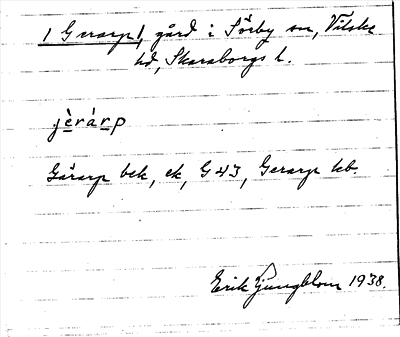 1 Gerarp 1, gård i Sörby sn, Vilske
hd, Skaraborgs l.
jèrárp
Gärarp bek, ek, G 43, Gerarp kb.
Erik Ljungblom 1938.